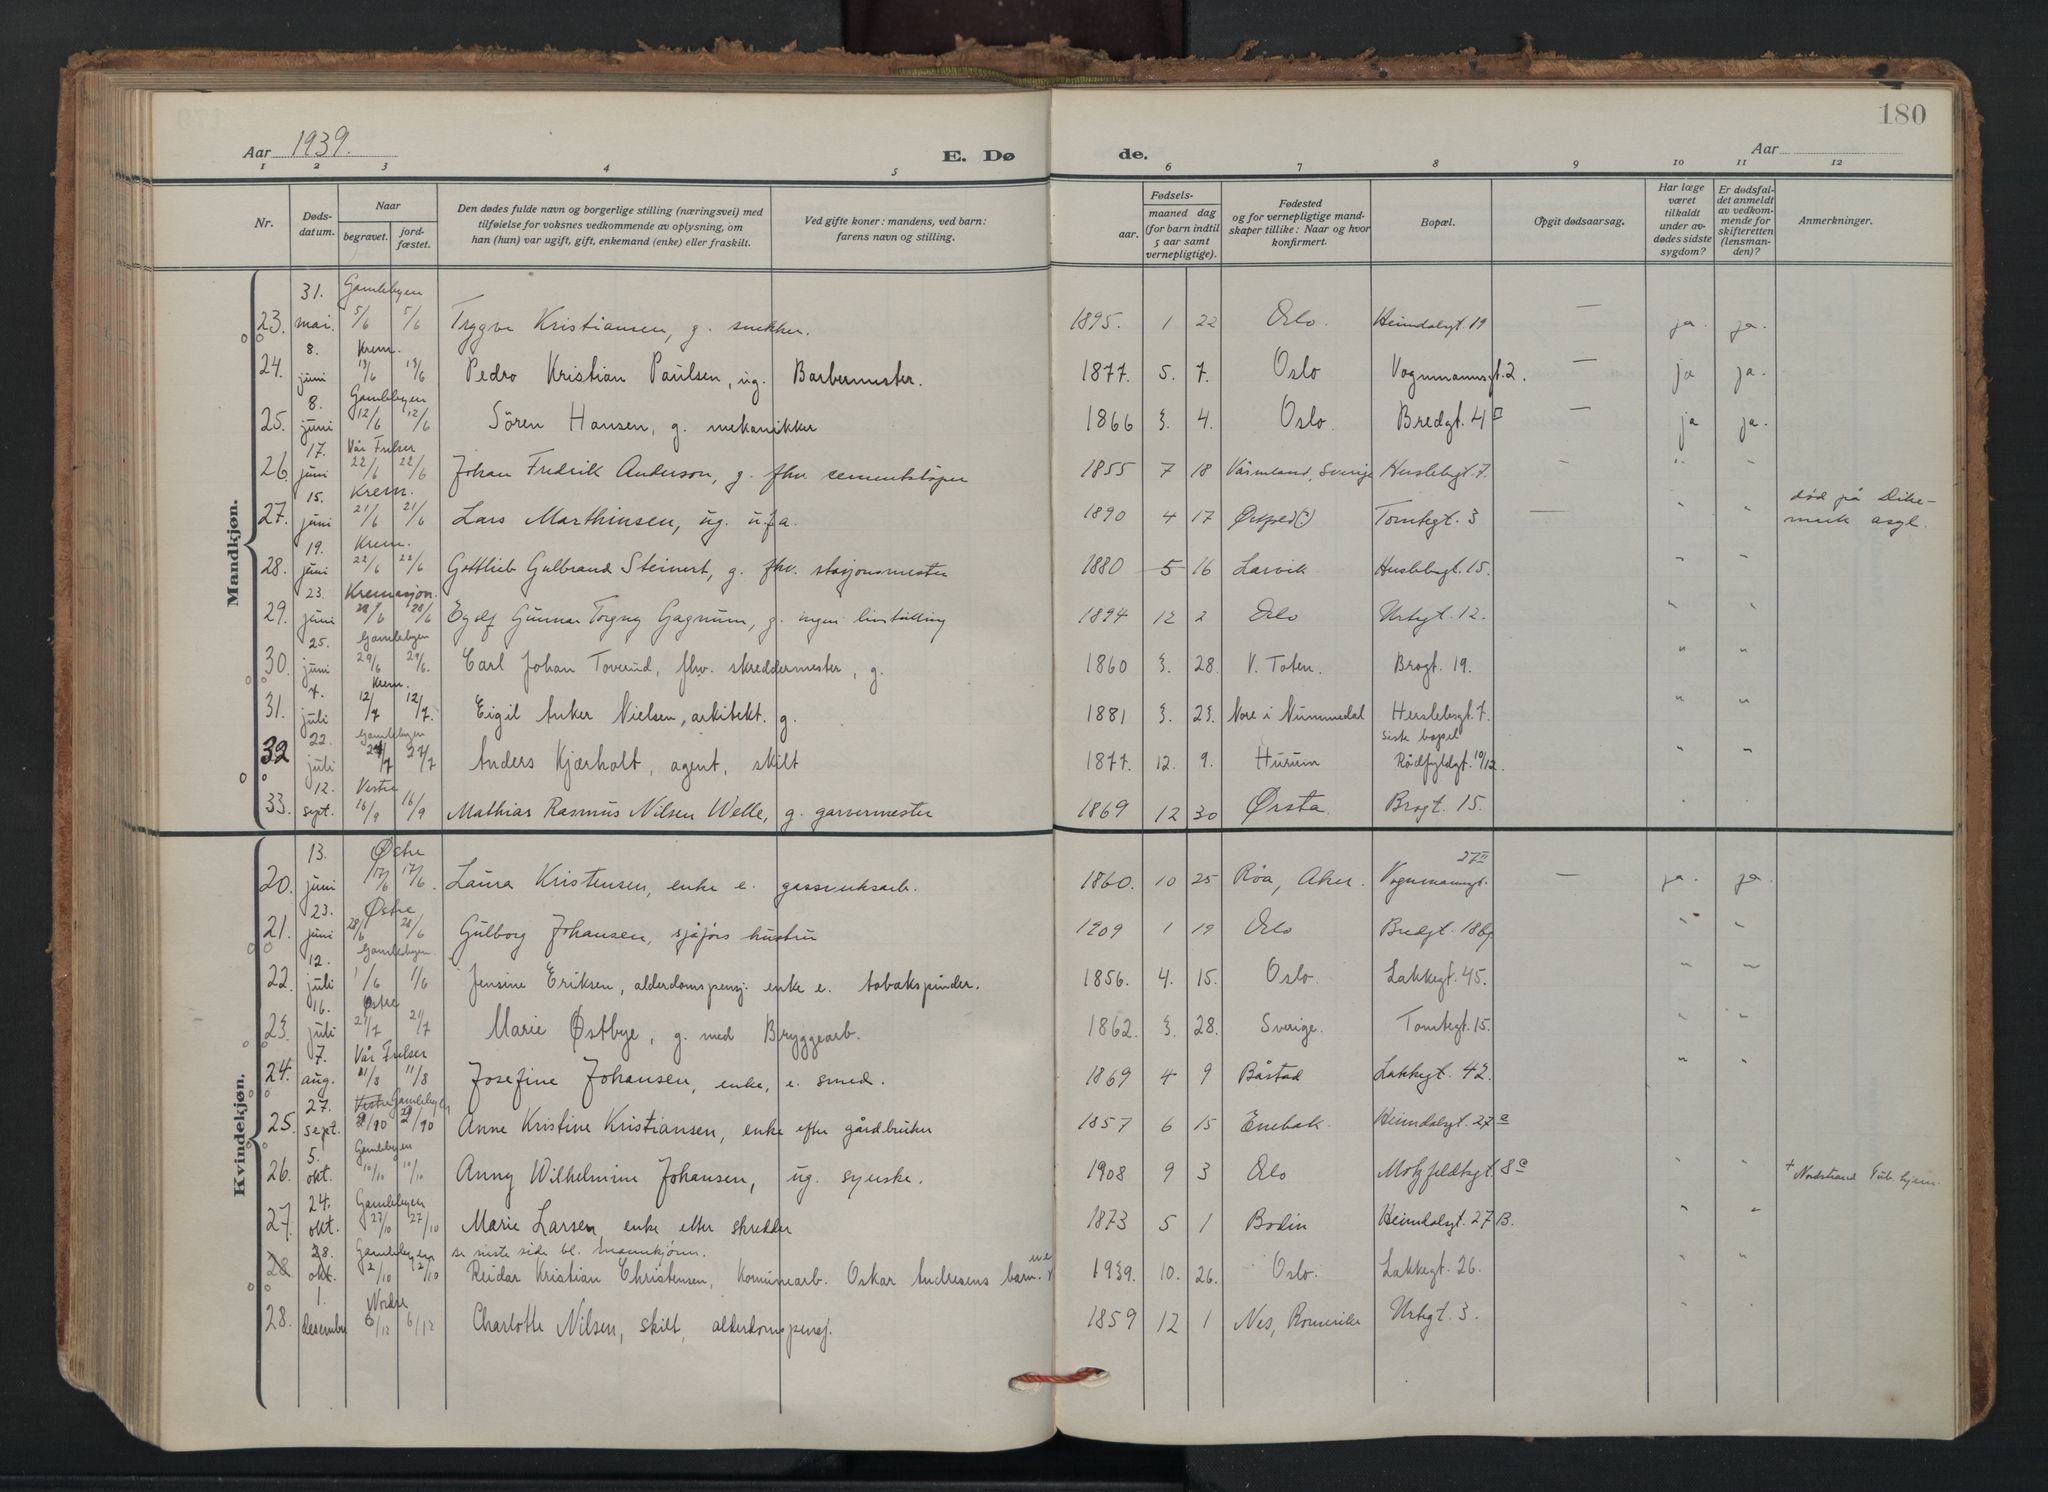 180
Aar 1939.
E. Dø de.
Aar
1 2 3 4 5 6 7 8 9 10 11 12
Nr.
Døds-
datum.
Naar
begravet.
jord-
fæstet.
Den dødes fulde navn og borgerlige stilling (næringsvei) med
tilføielse for voksnes vedkommende av oplysning, om
han (hun) var ugift, gift, enkemand (enke) eller fraskilt.
Ved gifte koner: mandens, ved barn:
farens navn og stilling.
Fødsels-
aar.
maaned dag
(for barn indtil
5 aar samt
vernepligtige).
Fødested
og for vernepligtige mand-
skaper tillike: Naar og hvor
konfirmert.
Bopæl.
Opgit dødsaarsag.
Har læge
været
tilkaldt
under av-
dødes sidste
sygdom?
Er dødsfal-
det anmeldt
av vedkom-
mende for
skifteretten
(lensman-
den)?
Anmerkninger.
Mandkjøn.
31. Gamlebyen
23. mai. 5/6 5/6 Trygve Kristiansen, g. snekker. 1895. 1 22 Oslo. Heimdalsgt. 19 — ja. ja.
8. Krem.
24. juni 13/6 13/6 Pedro Kristian Paulsen, ug. Barbermester. 1877. 5. 7. Oslo Vognmannsgt. 2. — ja ja.
8. Gamlebyen
25. juni 12/6 12/6 Sören Hansen, g. mekanikker 1866 3. 4. Oslo. Bredgt. 4 — ja ja.
17. Vår Frelser
26. juni 22/6 22/6 Johan Fredrik Anderson, g. fhv. cementstöper 1855 7 18 Värmland, Sverige Herslebsgt. 7. - " -
15. Krem.
27. juni 21/6 21/6 Lars Marthinsen, ug. u.f.a. 1890 4 17 Tomtegt. 3 — " " død på Dike-
mark asyl.
19. Krem.
28. juni 22/6 22/6 Gottlieb Gulbrand Steinert, g. fhv. stasjonsmester 1880 5 16 Larvik Herslebsgt. 15. " "
23. Kremasjon.
29. juni 28/6 28/6 Egolf Gunnar Torgny Gagnum, g. ingen livstilling 1894 12 2 Oslo Urtegt. 12. " "
25. Gamlebyen
30. juni 29/6 29/6. Carl Johan Toverud, fhv. skreddermester, g. 1860 3. 28. V. Toten. Brogt. 19. " "
7. Krem.
31. juli 12/7 12/7. Eigil Anker Nielsen, arkitekt. g. 1881 3. 23. Nore i Nummedal Herslebsgt. 7. " "
22. Gamlebyen siste bopel
32 juli 27/7 27/7 Anders Kjærholt, agent, skilt 1877. 12. 9. Hurum Rødfyldgt. 10/12. " "
12. Vestre
33. sept. 16/9 16/9 Mathias Rasmus Nilsen Welle, g. garvermester 1869 12 30 Ørsta Brogt. 15. " "
Kvindekjøn.
13. Østre 27II
20. juni 17/6 17/6. Laura Kristensen, enke e. gassverksarb. 1860. 10 25 Røa, Aker. Vognmannsgt. — ja. ja.
23. Østre
21. juni 28/6 28/6 Gulborg Johansen, sjåførs hustru 1909 1 19 Oslo Bredgt. " "
12. Gamlebyen
22. juli 1/6 1/6 Jensine Eriksen, alderdomspensj. enke e. tobakspinder. 1856. 4. 15. Oslo. Lakkegt. 45. " "
16. Østre
23. juli 21/7 21/7 Marie Østbye, g. med Bryggearb. 1862. 3. 28. Sverige. Tomtegt. 15. " "
7. Vår Frelser
24. aug. 11/8 11/8 Josefine Johansen, enke, e. smed. 1869 4 9 Båstad Lakkegt. 42. " "
27. Vestre Gamlebyen
25. sept. 2/10 29/10 Anne Kristine Kristiansen, enke efter gårdbruker 1857 6 15 Enebak. Heimdalsgt. 27a " "
5. Gamlebyen
26. okt. 10/10 10/10 Anny Wilhelmine Johansen, ug. syerske. 1908 9 3 Oslo Motzfeldtsgt. 8a " " + Nordstrand Tub. hjem.
24. Gamlebyen
27. okt. 27/10 27/10 Marie Larsen, enke etter skredder 1873 5 1 Bodin Heimdalsgt. 27 B. " "
28. Gamlebyen se neste side bl. mannkjønn.
28 okt. 2/10 2/10 Reidar Kristian Christensen, Komunearb. Oskar Andresens barn. 1939. 10. 26. Oslo. Lakkegt. 26.
1. Nordre
28. desember 6/12 6/12 Charlotte Nilsen, skilt, alderdomspensj. 1859 12 1 Nes, Romerike Urtegt. 3.